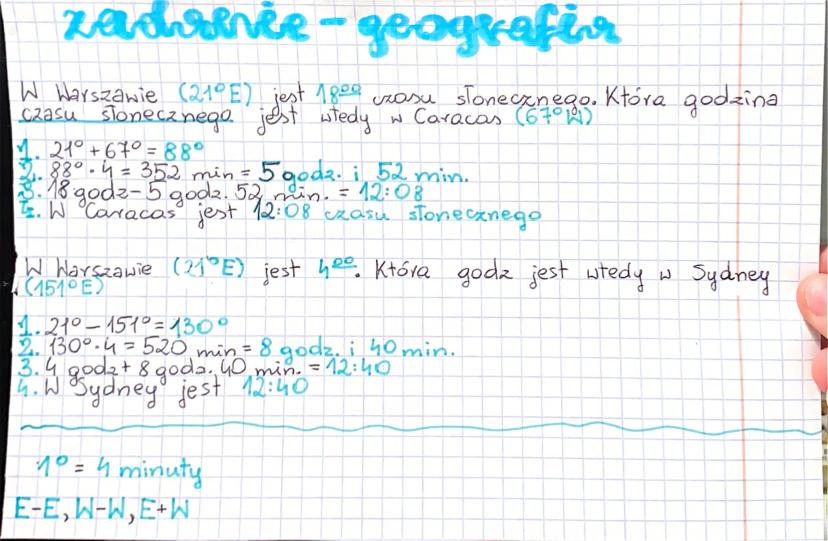 zadanie - geografia
W Warszawie (21°E) jest 18⁰⁰ czasu słonecznego. Która godzina
czasu słonecznego jest wtedy w Caracas (67°W)
1. 21° + 67° = 88°
2. 88° · 4 = 352 min = 5 godz. i 52 min.
3. 18 godz - 5 godz. 52 min. = 12:08
4. W Caracas jest 12:08 czasu słonecznego
W Warszawie (21°E) jest 4⁰⁰. Która godz jest wtedy w Sydney
(151°E)
1. 21° - 151° = 130°
2. 130° · 4 = 520 min = 8 godz. i 40 min.
3. 4 godz + 8 godz. 40 min. = 12:40
4. W Sydney jest 12:40
1° = 4 minuty
E-E, W-W, E+W